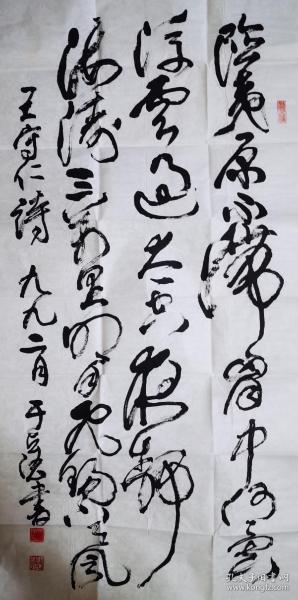 險夷原不滯胸中何異
浮雲過太空夜靜
海濤三万里明月飛錫下天風
王守仁詩 九九二月 于 書
孔夫子旧书网